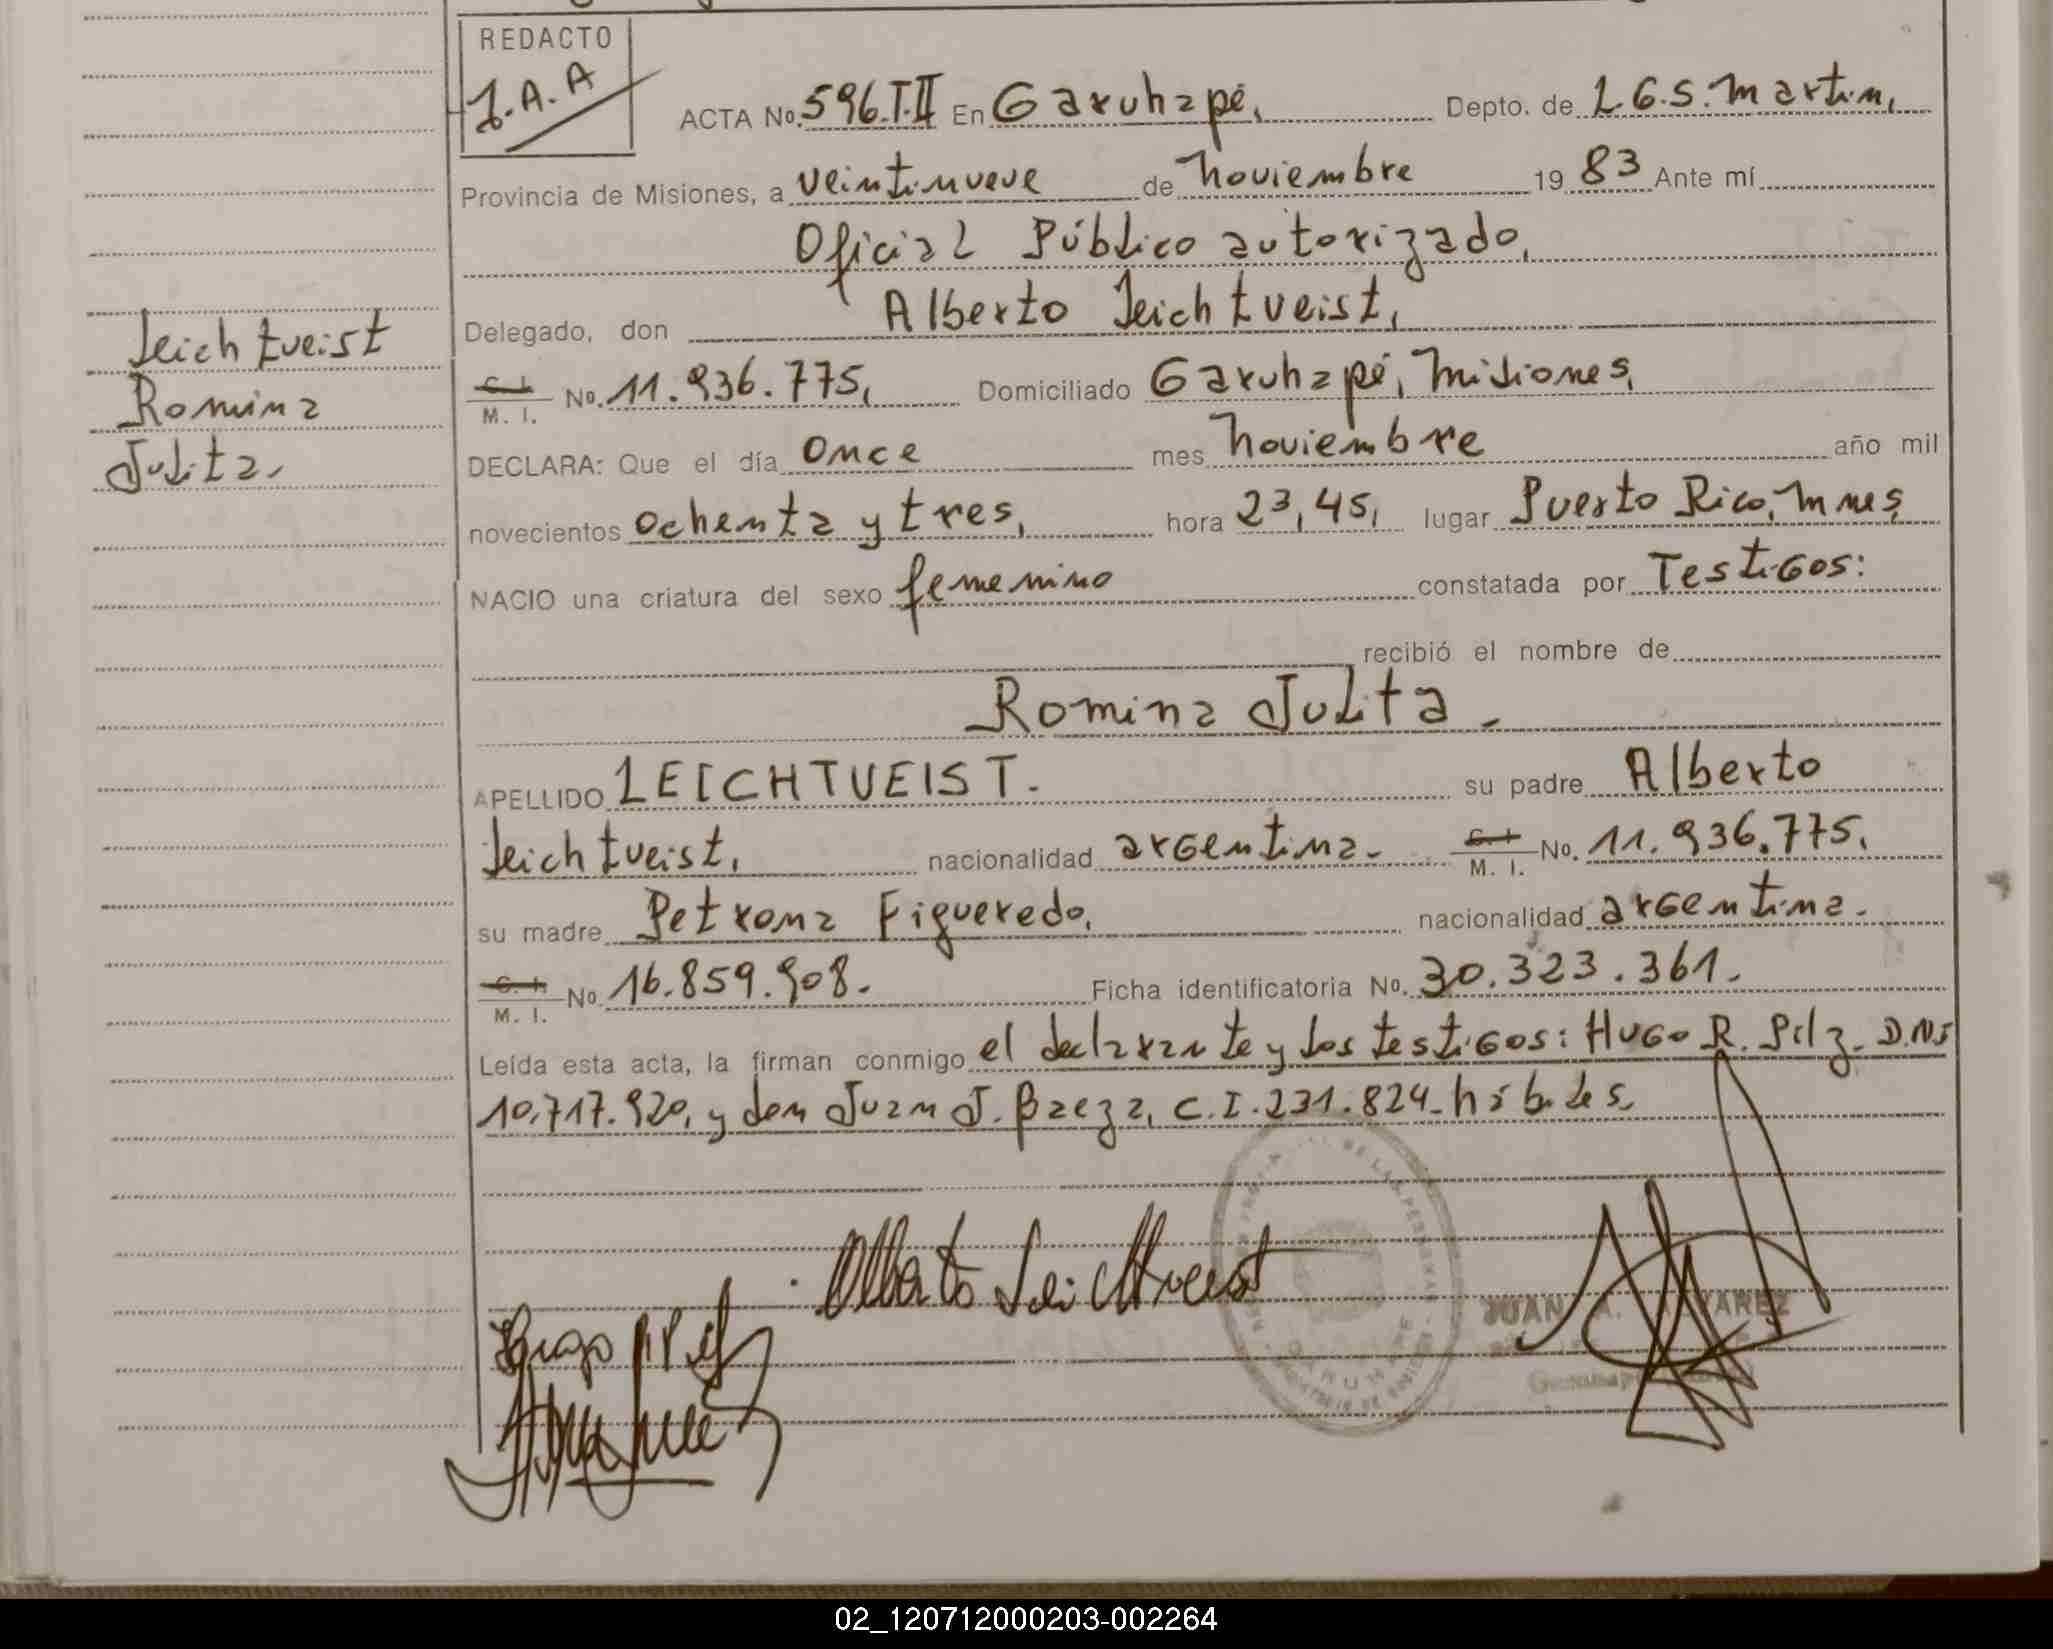 REDACTO
J.A.A
ACTA No. 596.T.II En Garuhapé, Depto. de L.G.S.Martin,
Provincia de Misiones, a veintinueve de noviembre 19 83 Ante mí
Oficial Público autorizado,
Delegado, don Alberto Leichtveist,
C. I.
M. I. No. 11.936.775, Domiciliado Garuhapé, Misiones,
DECLARA: Que el día once mes noviembre año mil
novecientos ochenta y tres, hora 23,45, lugar Puerto Rico, Mnes,
NACIO una criatura del sexo femenino constatada por Testigos:
recibió el nombre de
Romina Julita.
APELLIDO LEICHTVEIST. su padre Alberto
Leichtveist, nacionalidad argentina. C. I.
M. I. No. 11.936.775.
su madre Petrona Figueredo, nacionalidad argentina.
C. I.
M. I. No. 16.859.908. Ficha identificatoria No. 30.323.361.
Leída esta acta, la firman conmigo el declarante y los testigos: Hugo R. Pilz. D.N.I
10.717.920, y don Juan J. Baeza, C.I.231.824. hábiles.
Leichtveist
Romina
Julita.
Alberto Leichtveist
DE LAS PERSONAS
JUAN A.
02_120712000203-002264